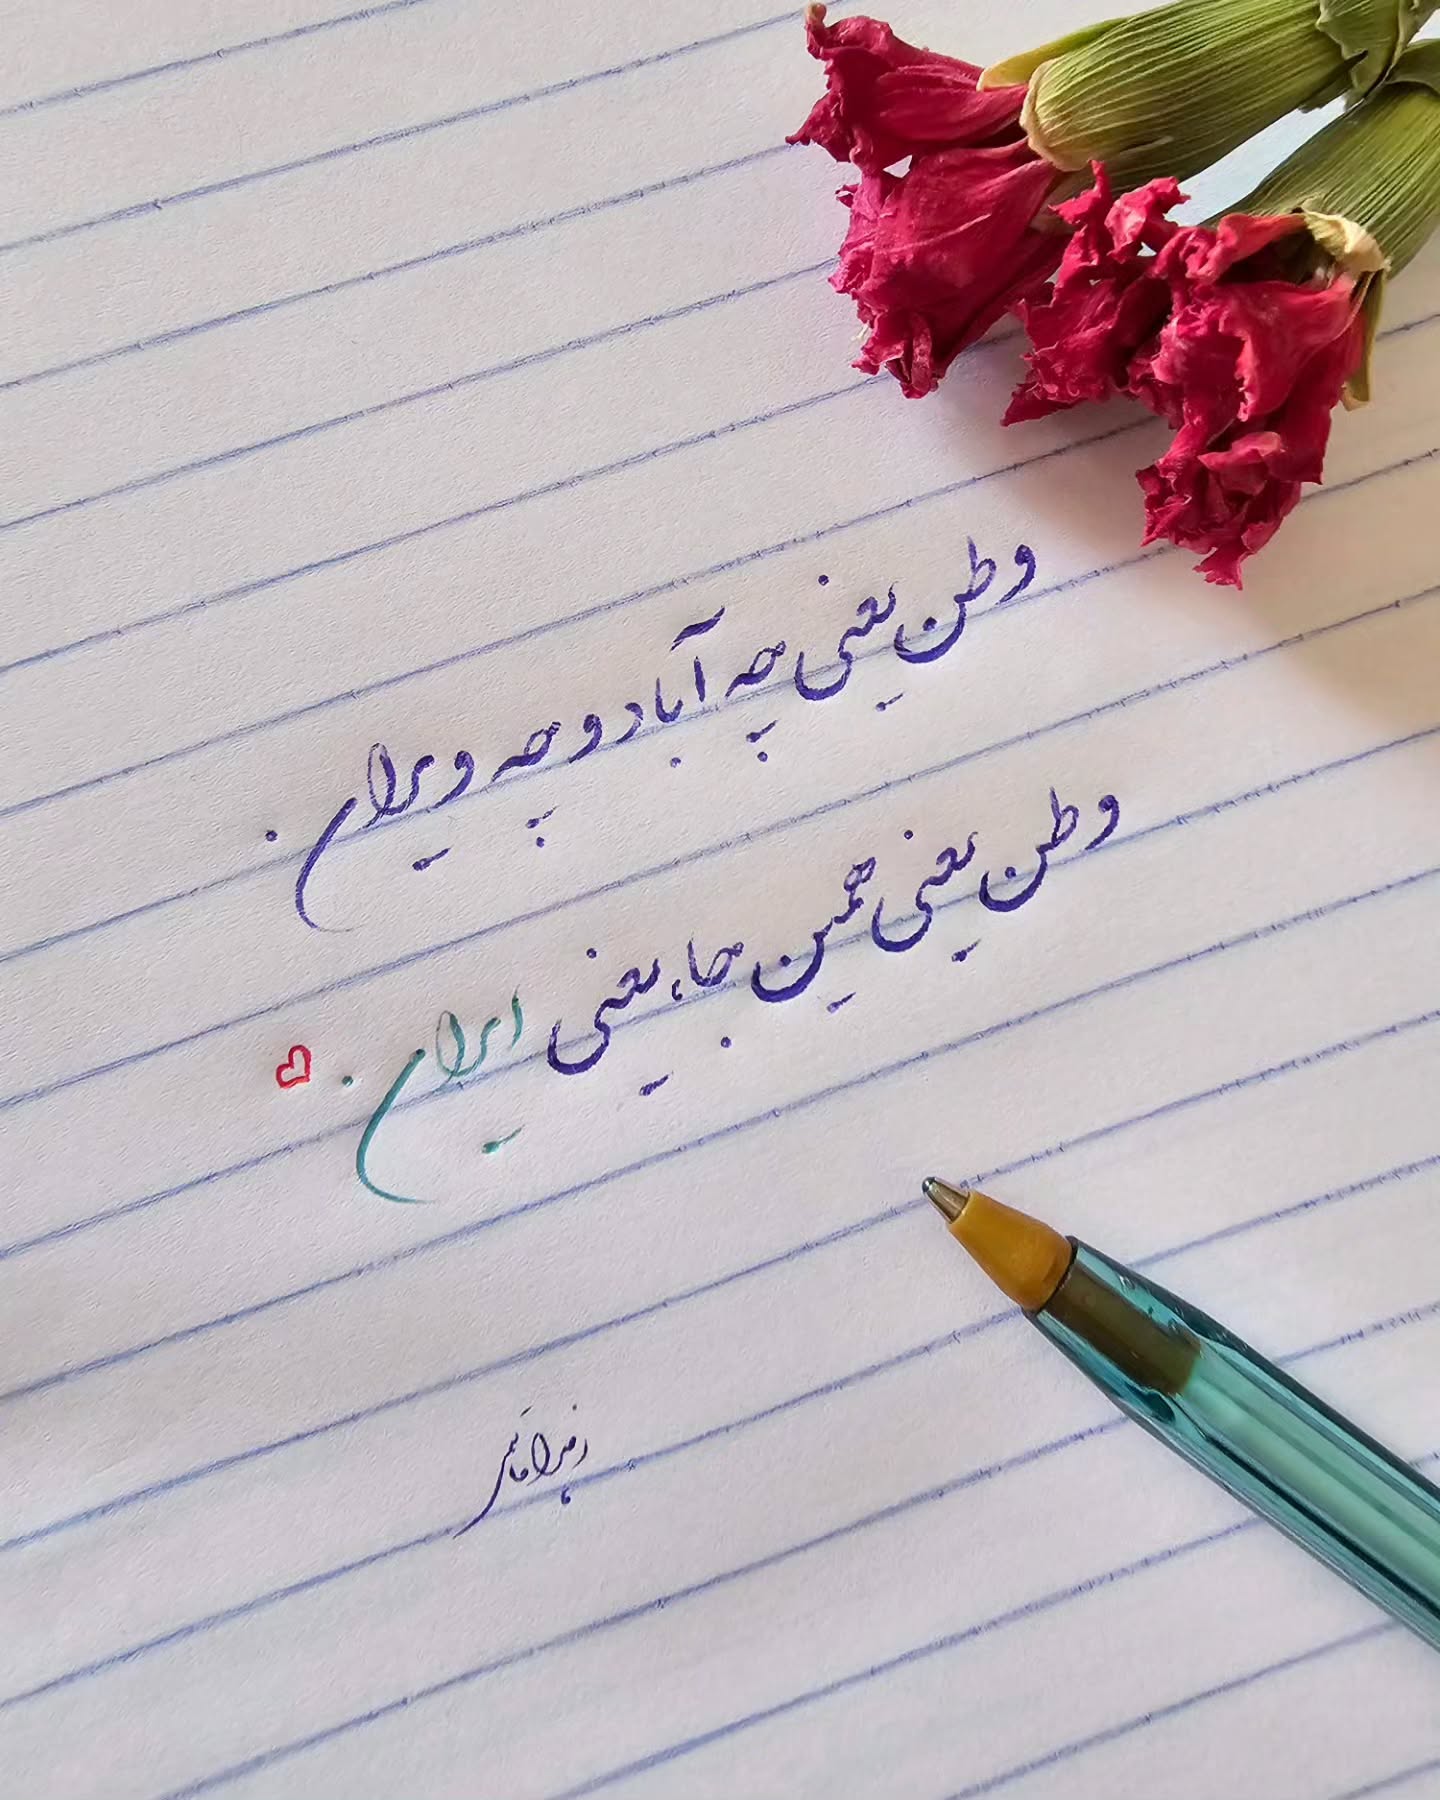 وطن یعنی چه آباد و چه ویران.
وطن یعنی همین جا، یعنی ایران.
زهرا قائمی